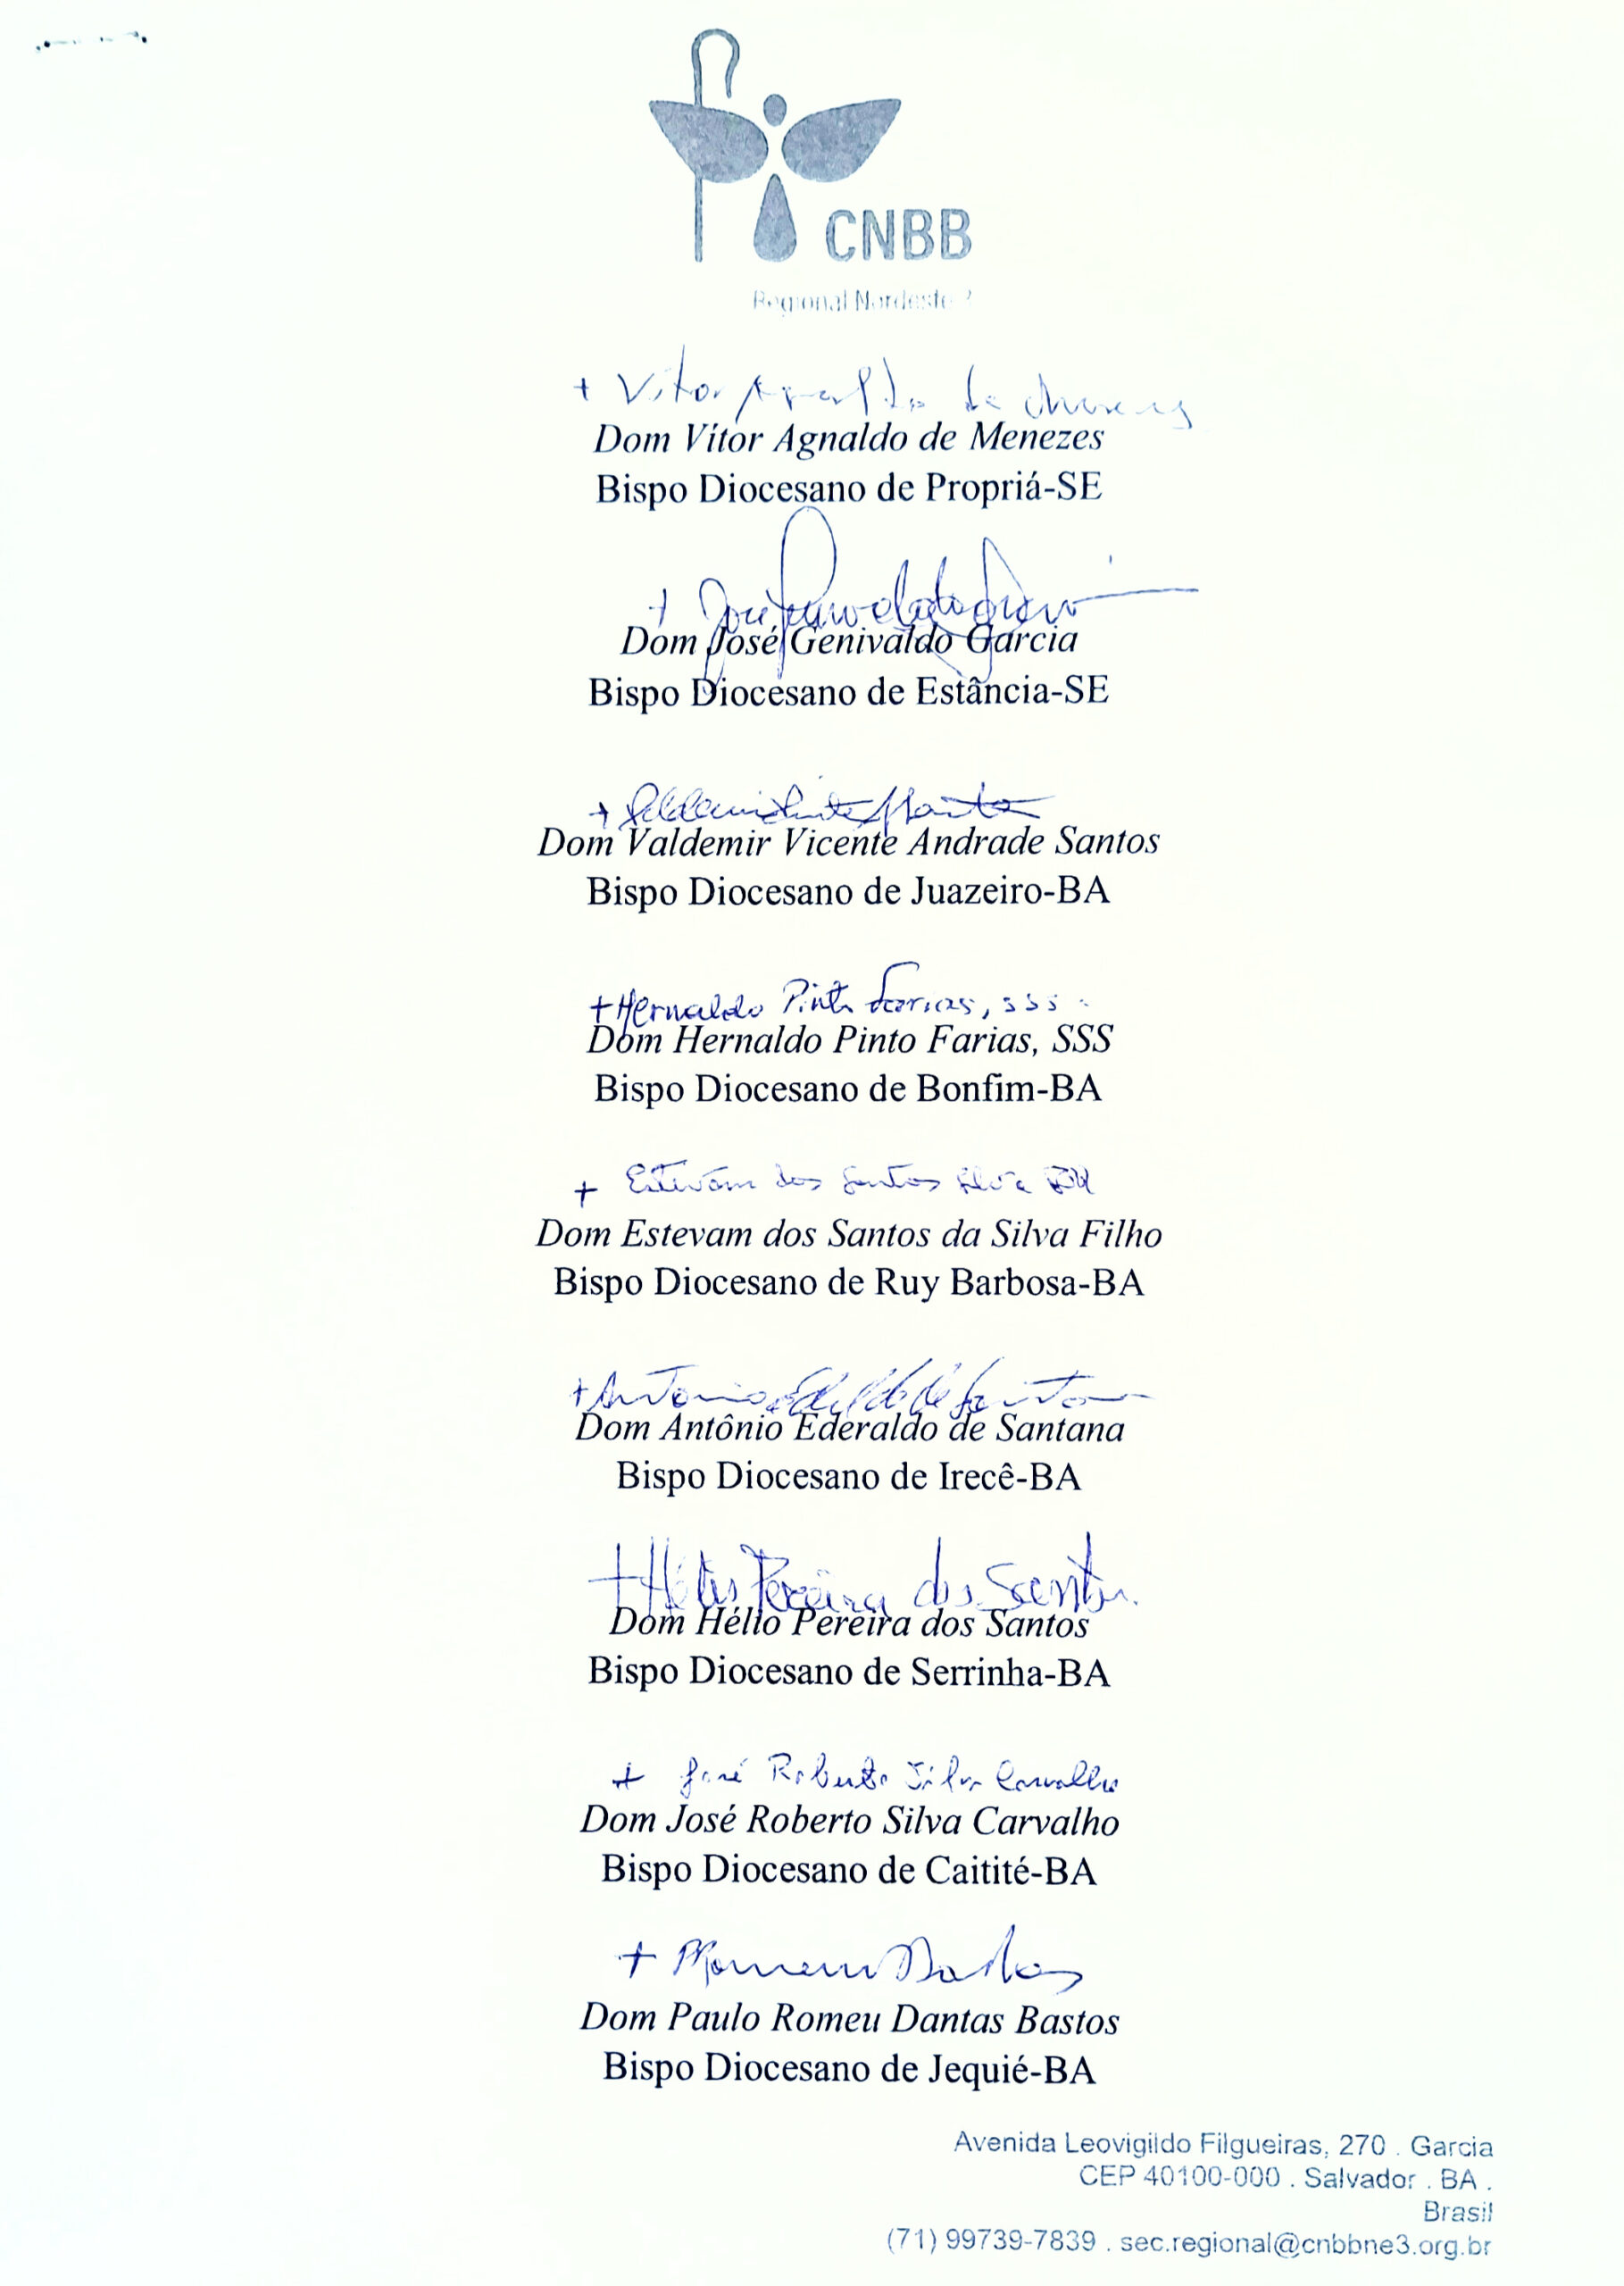 CNBB
Regional Nordeste
+ Vítor Agnaldo de Menezes
Dom Vítor Agnaldo de Menezes
Bispo Diocesano de Propriá-SE
+ José Genivaldo Garcia
Dom José Genivaldo Garcia
Bispo Diocesano de Estância-SE
+
Dom Valdemir Vicente Andrade Santos
Bispo Diocesano de Juazeiro-BA
+ Hernaldo Pinto Farias, sss
Dom Hernaldo Pinto Farias, SSS
Bispo Diocesano de Bonfim-BA
+ Estevam dos Santos Silva
Dom Estevam dos Santos da Silva Filho
Bispo Diocesano de Ruy Barbosa-BA
+ Antonio Ederaldo de Santana
Dom Antônio Ederaldo de Santana
Bispo Diocesano de Irecê-BA
+ Hélio Pereira dos Santos
Dom Hélio Pereira dos Santos
Bispo Diocesano de Serrinha-BA
+ José Roberto Silva Carvalho
Dom José Roberto Silva Carvalho
Bispo Diocesano de Caitité-BA
+
Dom Paulo Romeu Dantas Bastos
Bispo Diocesano de Jequié-BA
Avenida Leovigildo Filgueiras, 270 . Garcia
CEP 40100-000 . Salvador . BA .
Brasil
(71) 99739-7839 . sec.regional@cnbbne3.org.br